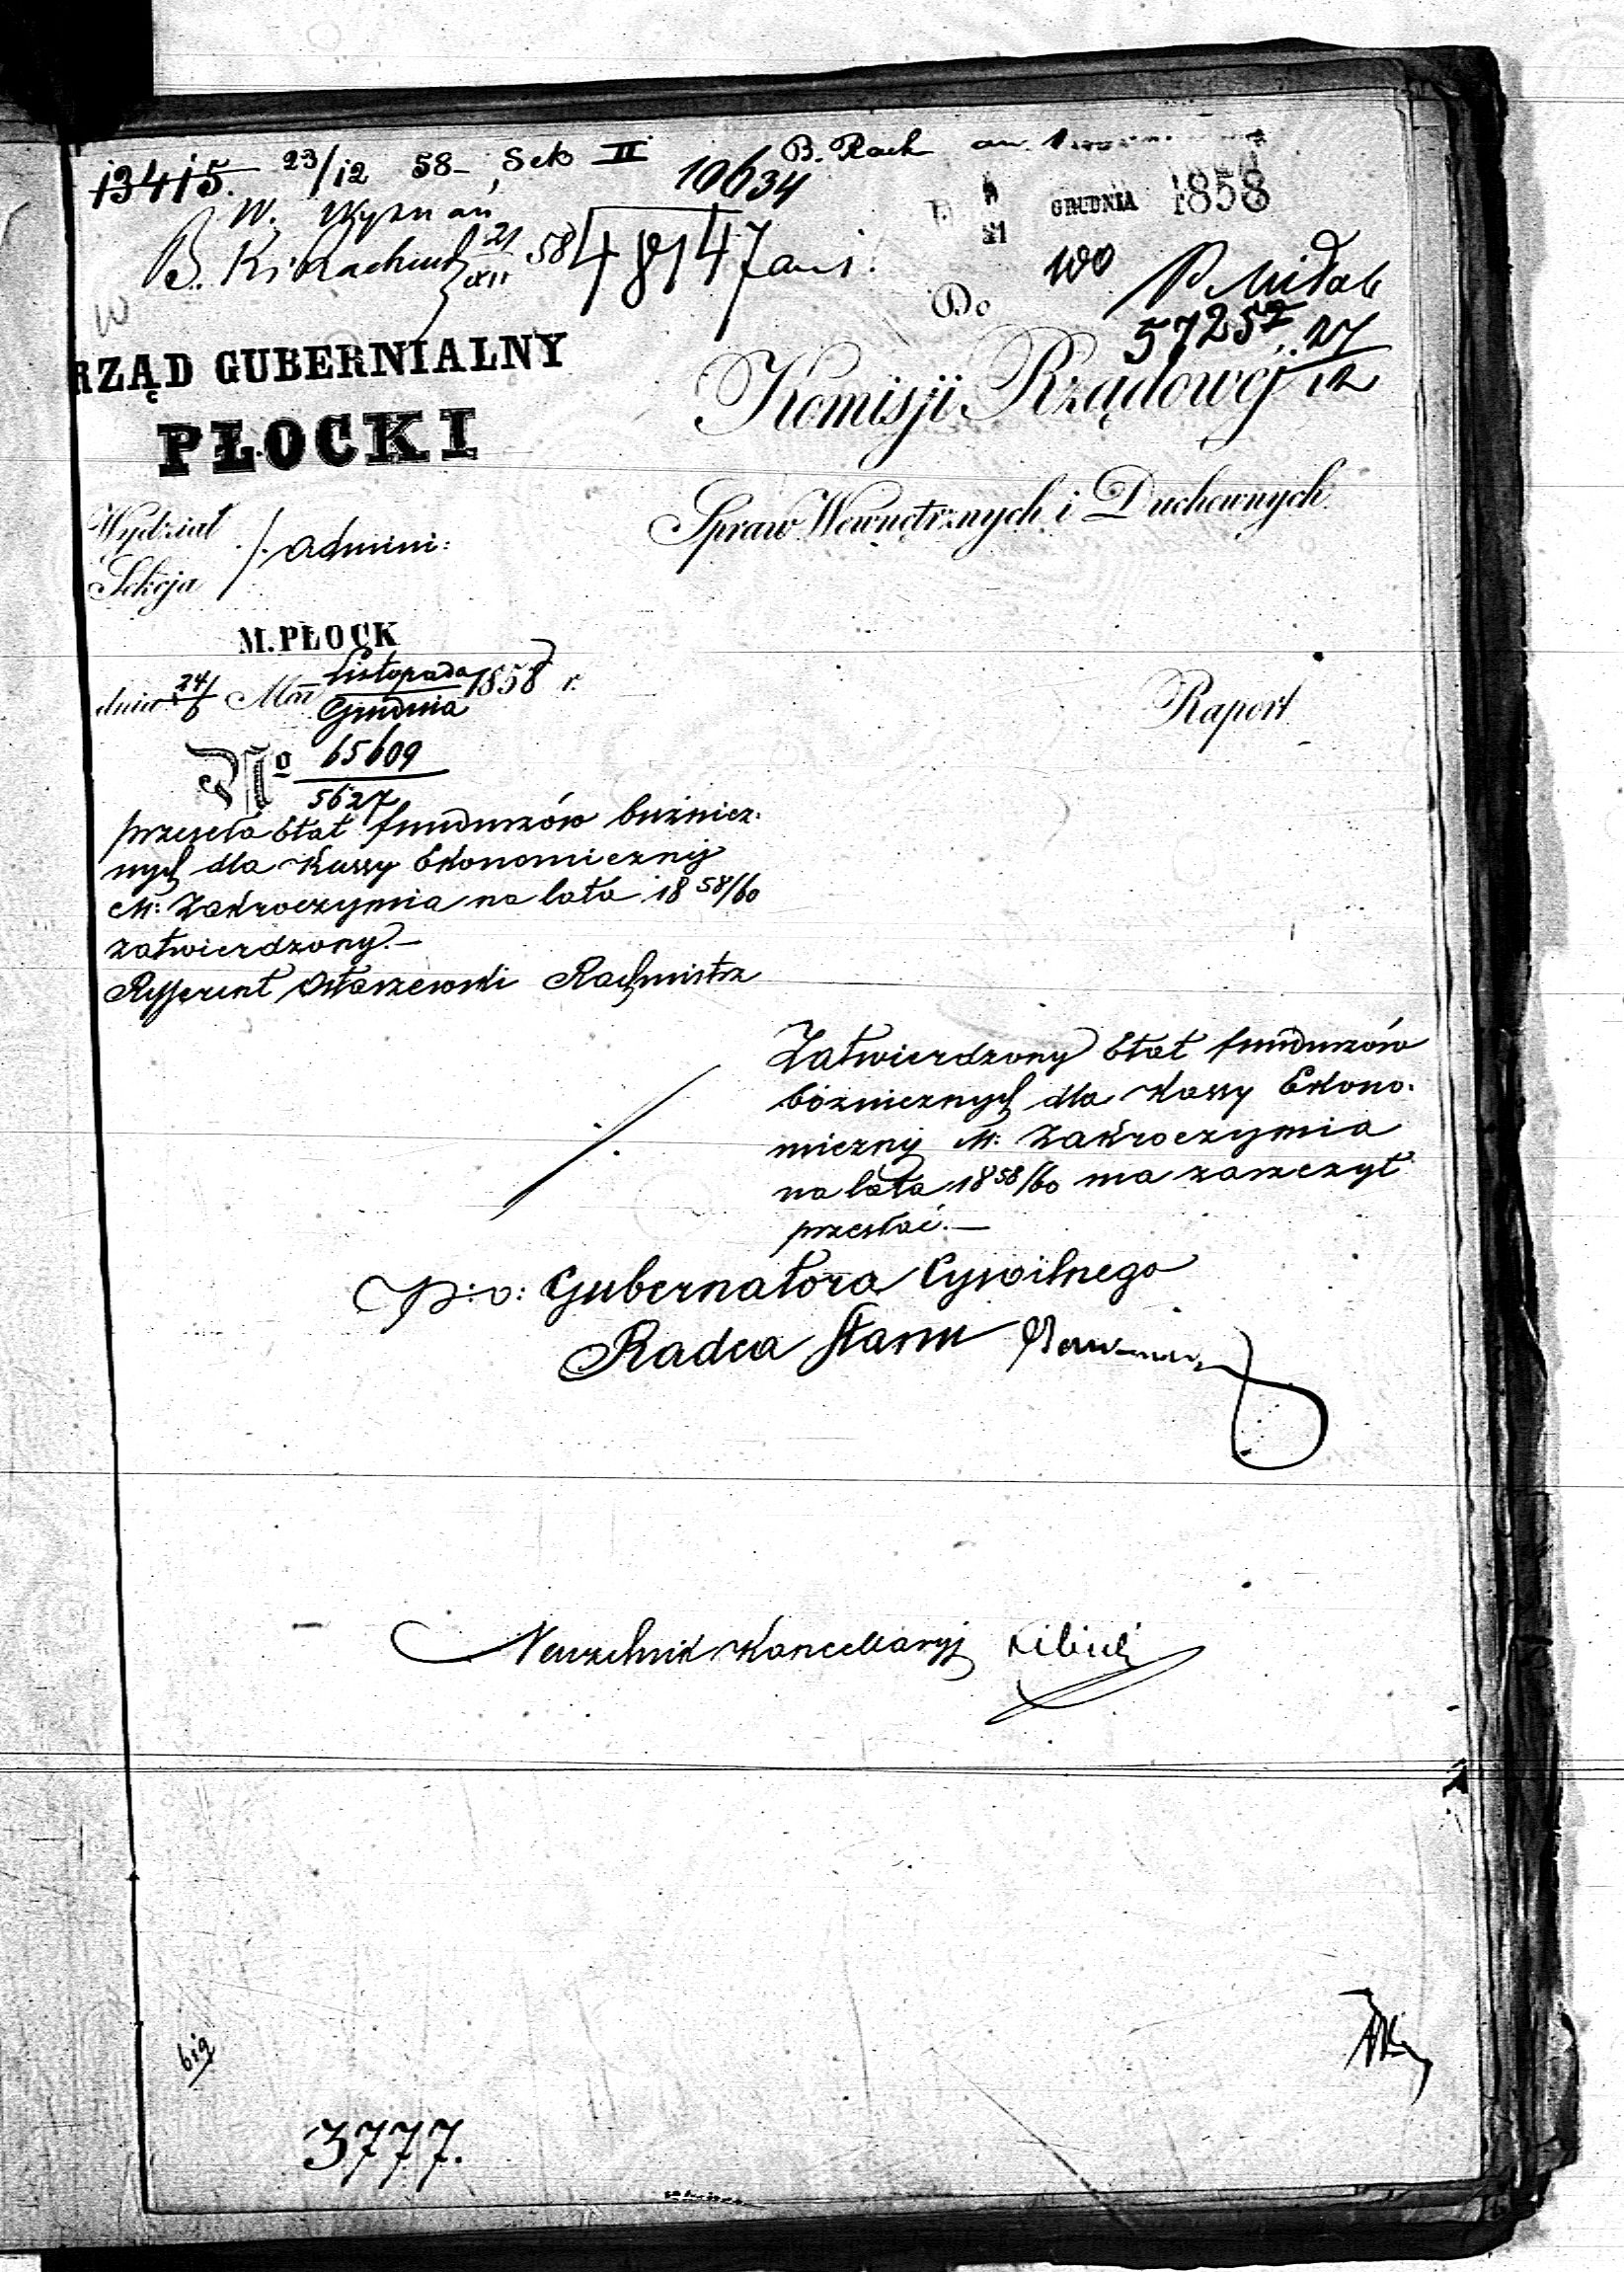 13415. 23/12 58 – Sek II 10634 B. Rach
W. Wyznań
B. Ki Rachub 21/XII 58 48147 GRUDNIA 1858
100
Do
57257. 27/12
RZĄD GUBERNIALNY
PŁOCKI
Komisji Rządowej
Spraw Wewnętrznych i Duchownych
Wydział
Sekcja
/. Admini:
M. PŁOCK
dnia 24/6 Mca Listopada/Grudnia 1858 r.
Raport
No 65609/5627
przesyła Etat funduszów bużnicz-
nych dla Kassy Ekonomicznej
M: Zakroczymia na lata 1858/60
zatwierdzony.—
Refferent Ostaszewski Rachmistrz
Zatwierdzony Etat funduszów
bóżnicznych dla Kassy Ekono-
micznej M: Zakroczymia
na lata 1858/60 ma zaszczyt
przesłać.—
P: o: Gubernatora Cywilnego
Radca Stanu
Naczelnik Kancellaryj
3777.